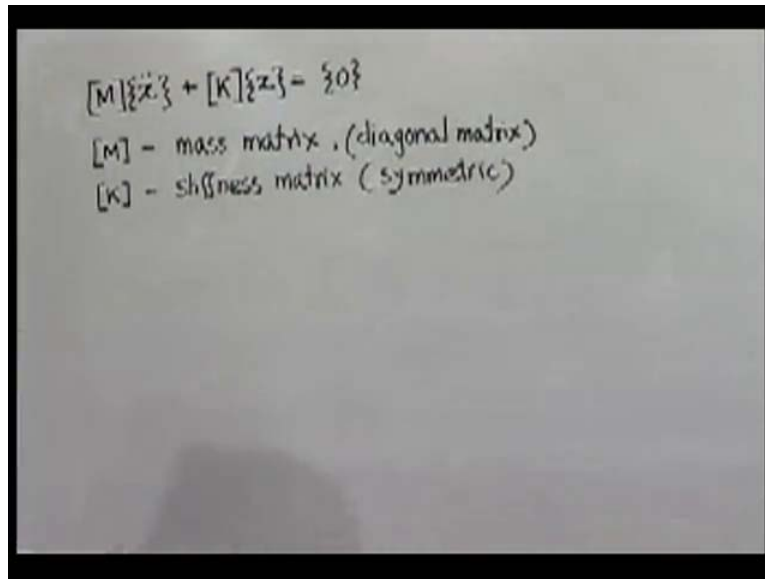 [M]{ẍ} + [K]{x} = {0}
[M] - mass matrix. (diagonal matrix)
[K] - stiffness matrix (symmetric)